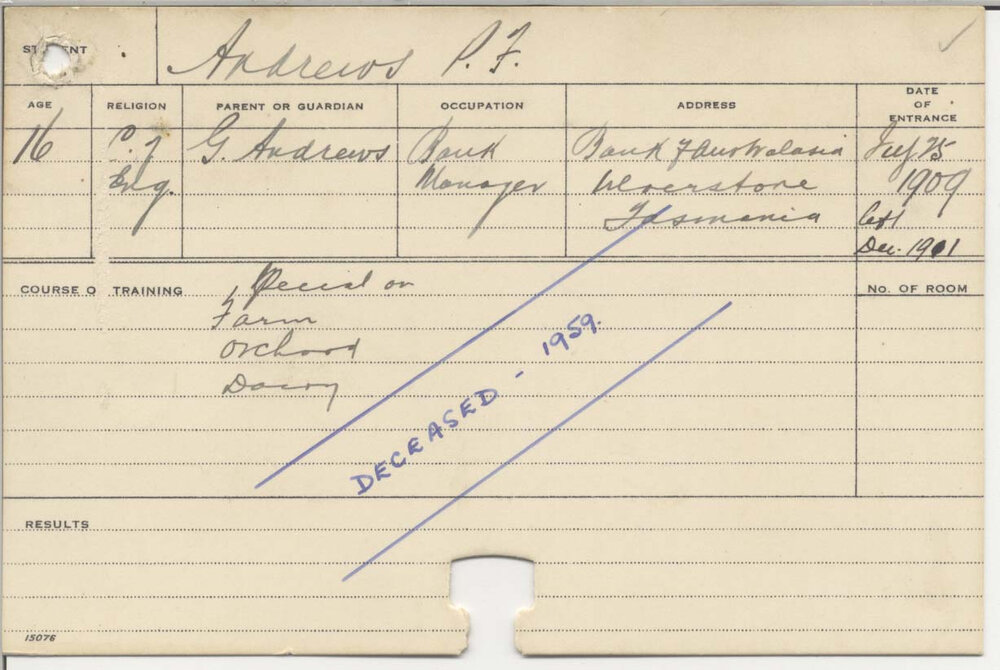 STUDENT Andrews P. F.
AGE RELIGION PARENT OR GUARDIAN OCCUPATION ADDRESS DATE OF ENTRANCE
16 C. of G. Andrews Bank Bank of Australasia July 25
Eng. Manager Ulverstone 1909
Tasmania left
Dec. 1911
COURSE O TRAINING Special on No. OF ROOM
Farm
Orchard
Dairy
DECEASED - 1959.
RESULTS
15076